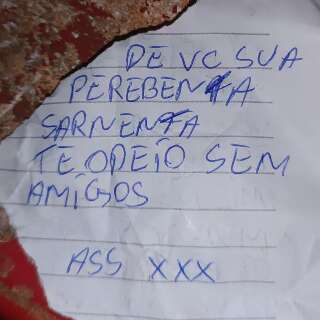 DE VC SUA
PEREBENTA
SARNENTA
TE ODEIO SEM
AMÍGOS
ASS XXX